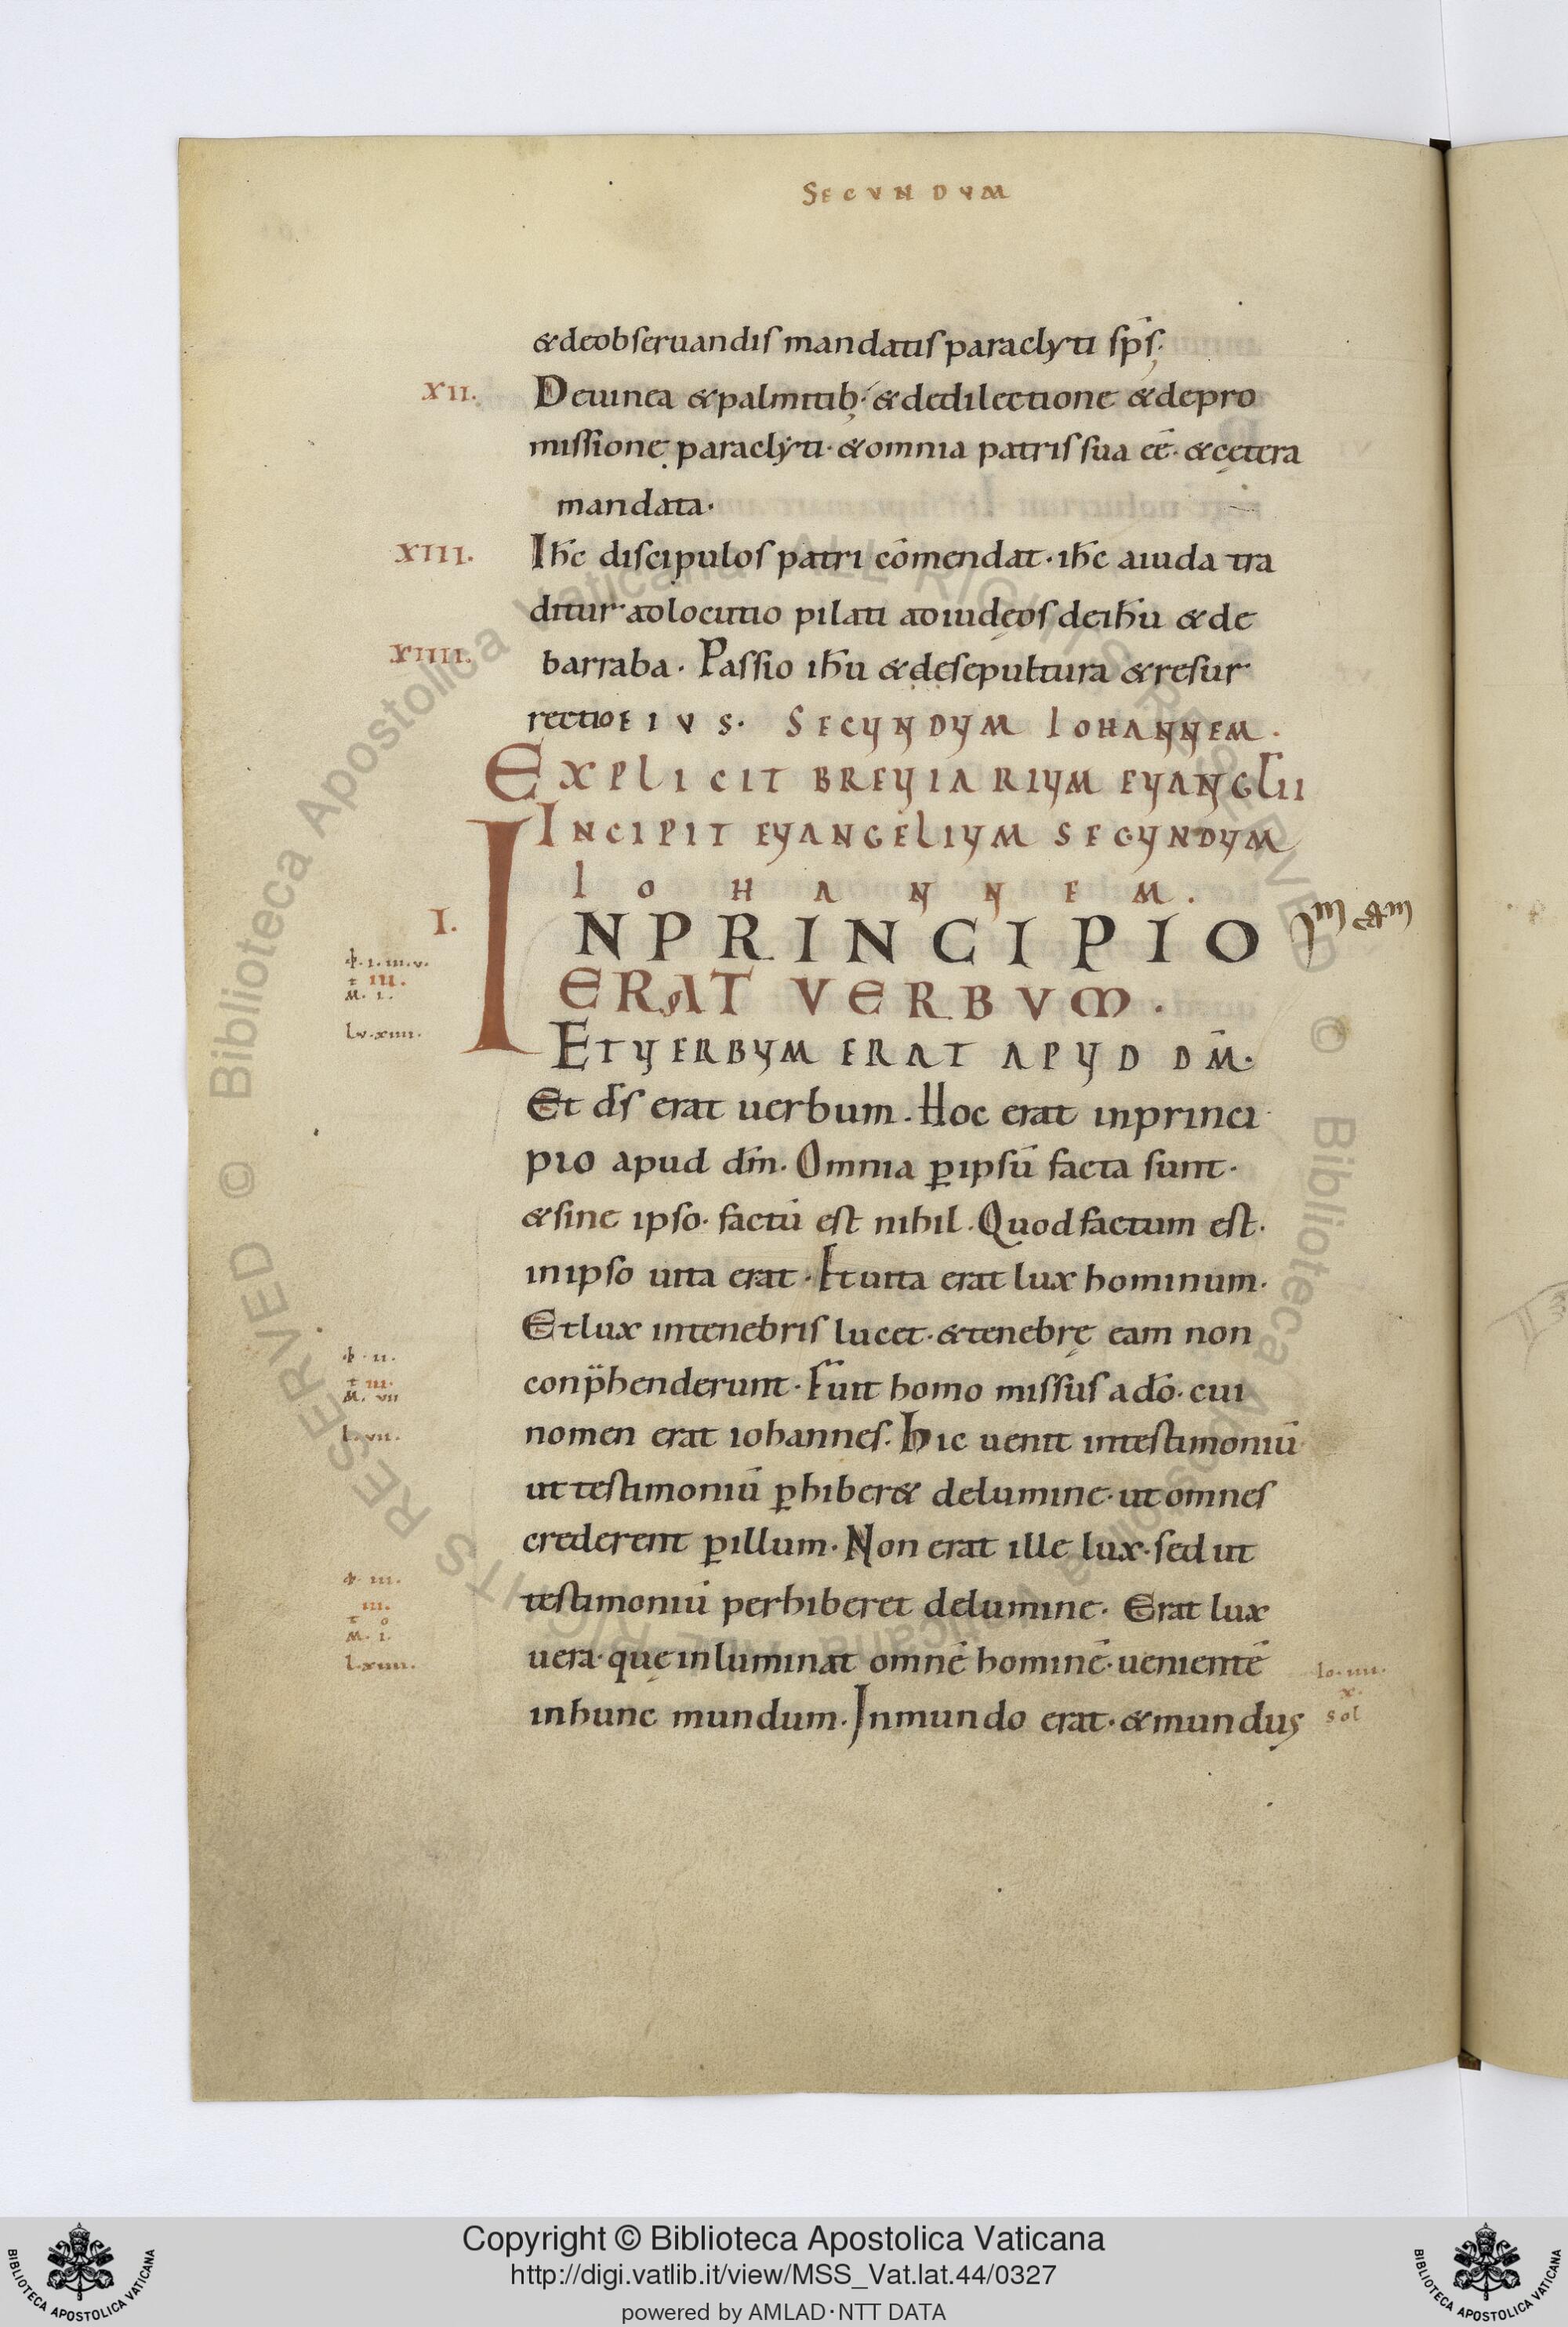 SECVNDVM
&deobseruandis mandatis paraclyti sp̄s.
XII. Deuinea &palmitib; &dedilectione &depro
missione paraclyti· &omnia patris sua eē· &cętera
mandata·
XIII. Ih̄c discipulos patri cōmendat· ih̄c aiuda tra
ditur adlocutio pilati adiudęos deih̄u &de
XIIII. barraba· Passio ih̄u &desepultura &resur
rectio EIVS· SECVNDVM IOHANNEM·
EXPLICIT BREVIARIVM EVANGL̄II
INCIPIT EVANGELIVM SECVNDVM
IOHANNEM·
I. INPRINCIPIO
ERAT VERBVM·
ETVERBVM ERAT APVD DM̄·
Et d̄s erat uerbum· Hoc erat inprinci
pio apud dm̄· Omnia ꝑipsū facta sunt·
&sine ipso· factū est nihil· Quodfactum est·
inipso uita erat· Etuita erat lux hominum·
Etlux intenebris lucet· &tenebrę eam non
conp̄henderunt· Fuit homo missus ado̅· cui
nomen erat iohannes· Hic uenit intestimoniū
ut testimoniū ꝑhiber& delumine· ut omnes
crederent ꝑillum· Non erat ille lux· sed ut
testimoniū perhiberet delumine· Erat lux
uera· quę inluminat omnē hominē· uenientē
inhunc mundum· Inmundo erat· &mundus
M. I.
lv. xiiii.
M. vii
l. vii.
M. I.
l. xiiii.
Io. iiii.
x.
sol
Copyright © Biblioteca Apostolica Vaticana
http://digi.vatlib.it/view/MSS_Vat.lat.44/0327
powered by AMLAD·NTT DATA
BIBLIOTECA APOSTOLICA VATICANA
BIBLIOTECA APOSTOLICA VATICANA
© Biblioteca Apostolica Vaticana ALL RIGHTS RESERVED © Biblioteca Apostolica Vaticana ALL RIGHTS RESERVED